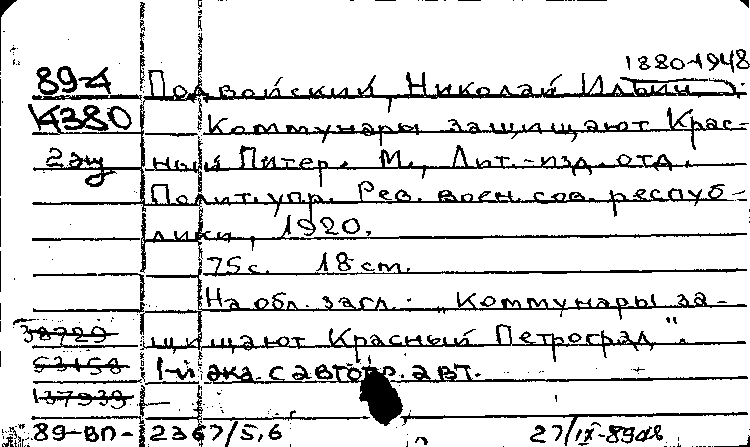 1880-1948
89-4 Подвойский, Николай Ильич
К380 Коммунары защищают Крас-
2 экз ный Питер. М., Лит.-изд. отд.
Полит. упр. Рев. воен. сов. респуб-
лики, 1920.
75 с. 18 cm.
На обл. загл.: „Коммунары за-
38729 щищают Красный Петроград".
53158 1-й экз. с автогр. авт.
137939
89-ВП- 2367/5,6 27/IX-89